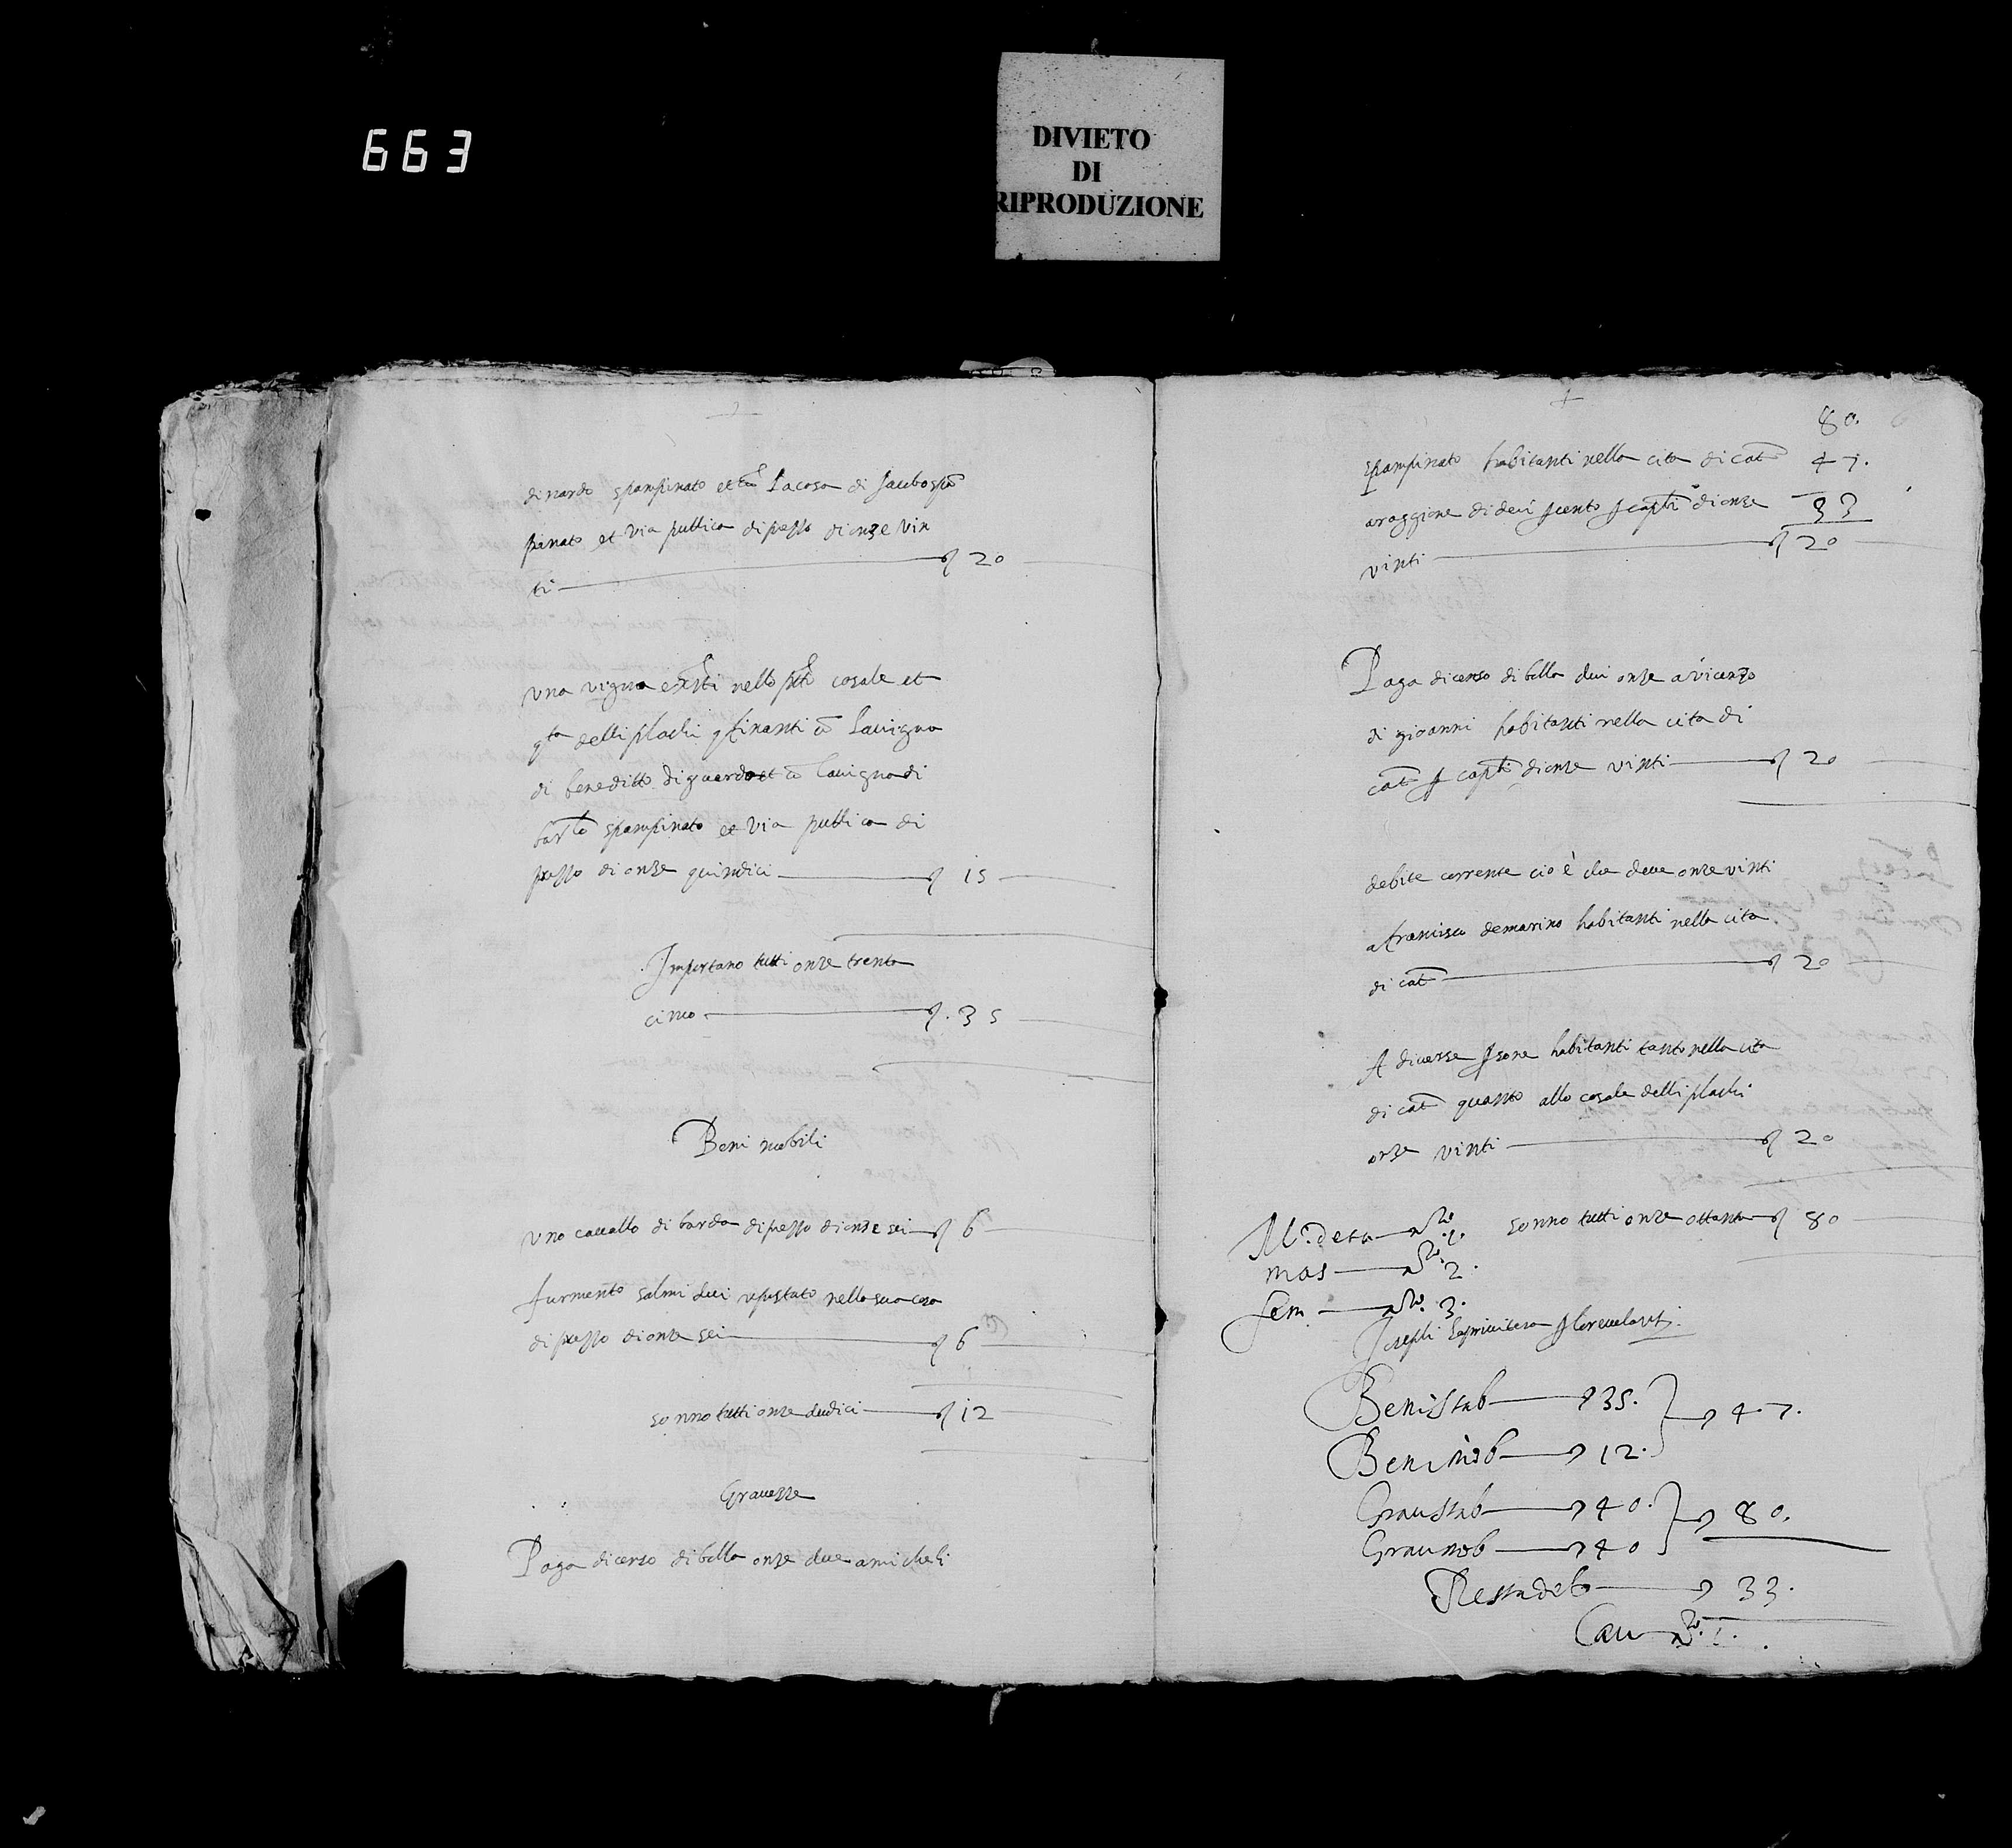 663
DIVIETO
DI
RIPRODUZIONE
di nardo spampinato et cū la casa di Jacubo spā
pinato et via publica di prezzo di onze vin
ti 20
una vigna existēti nello pditto casale et
qta delli plachi gfinanti cō la vigna
di beneditto di guardo et cō la vigna di
bartlo spampinato et via publica di
prezzo di onze quindici 15
Importano tutti onze trenta
cinco 35
Beni mobili
uno cavallo di barda di prezzo di onze sei 6
furmento salmi dui repustato nella sua casa
di prezzo di onze sei 6
sonno tutti onze dudici 12
Gravezze
Paga di censo di bolla onze due a micheli
80.
spampinato habitanti nella cita di cat 47.
a raggione di deci p cento p capti di onze 33
vinti 20
Paga di censo di bolla dui onze a vicenzo
di gioanni habitanti nella cita di
cat p capti di onze vinti 20
debite corrente cio è che deve onze vinti
a francisco de marino habitanti nella cita
di cat 20
A diverse psone habitanti tanto nella cita
di cat quanto allo casale delli plachi
onze vinti 20
sonno tutti onze ottanta 80
M. de eta nro 1.
mas nro 2.
fem nro 3.
Joseph p lo revelanti
Beni stab 35. 47.
Beni mob 12.
Grav stab 40. 80.
Grav mob 40
Resta deb 33.
Cav nro I.